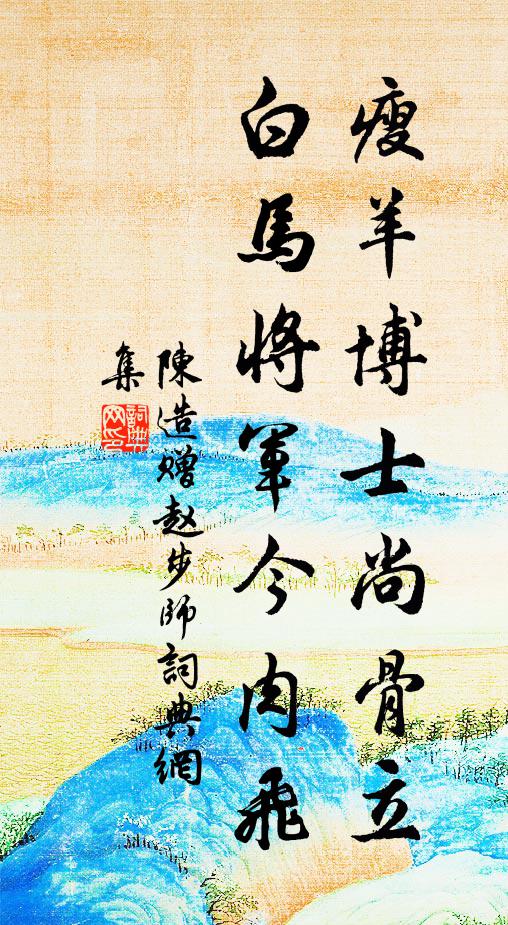 瘦羊博士尚骨立
白馬將軍今肉飛
陳造贈赵步師詞典網
集
詞典网印